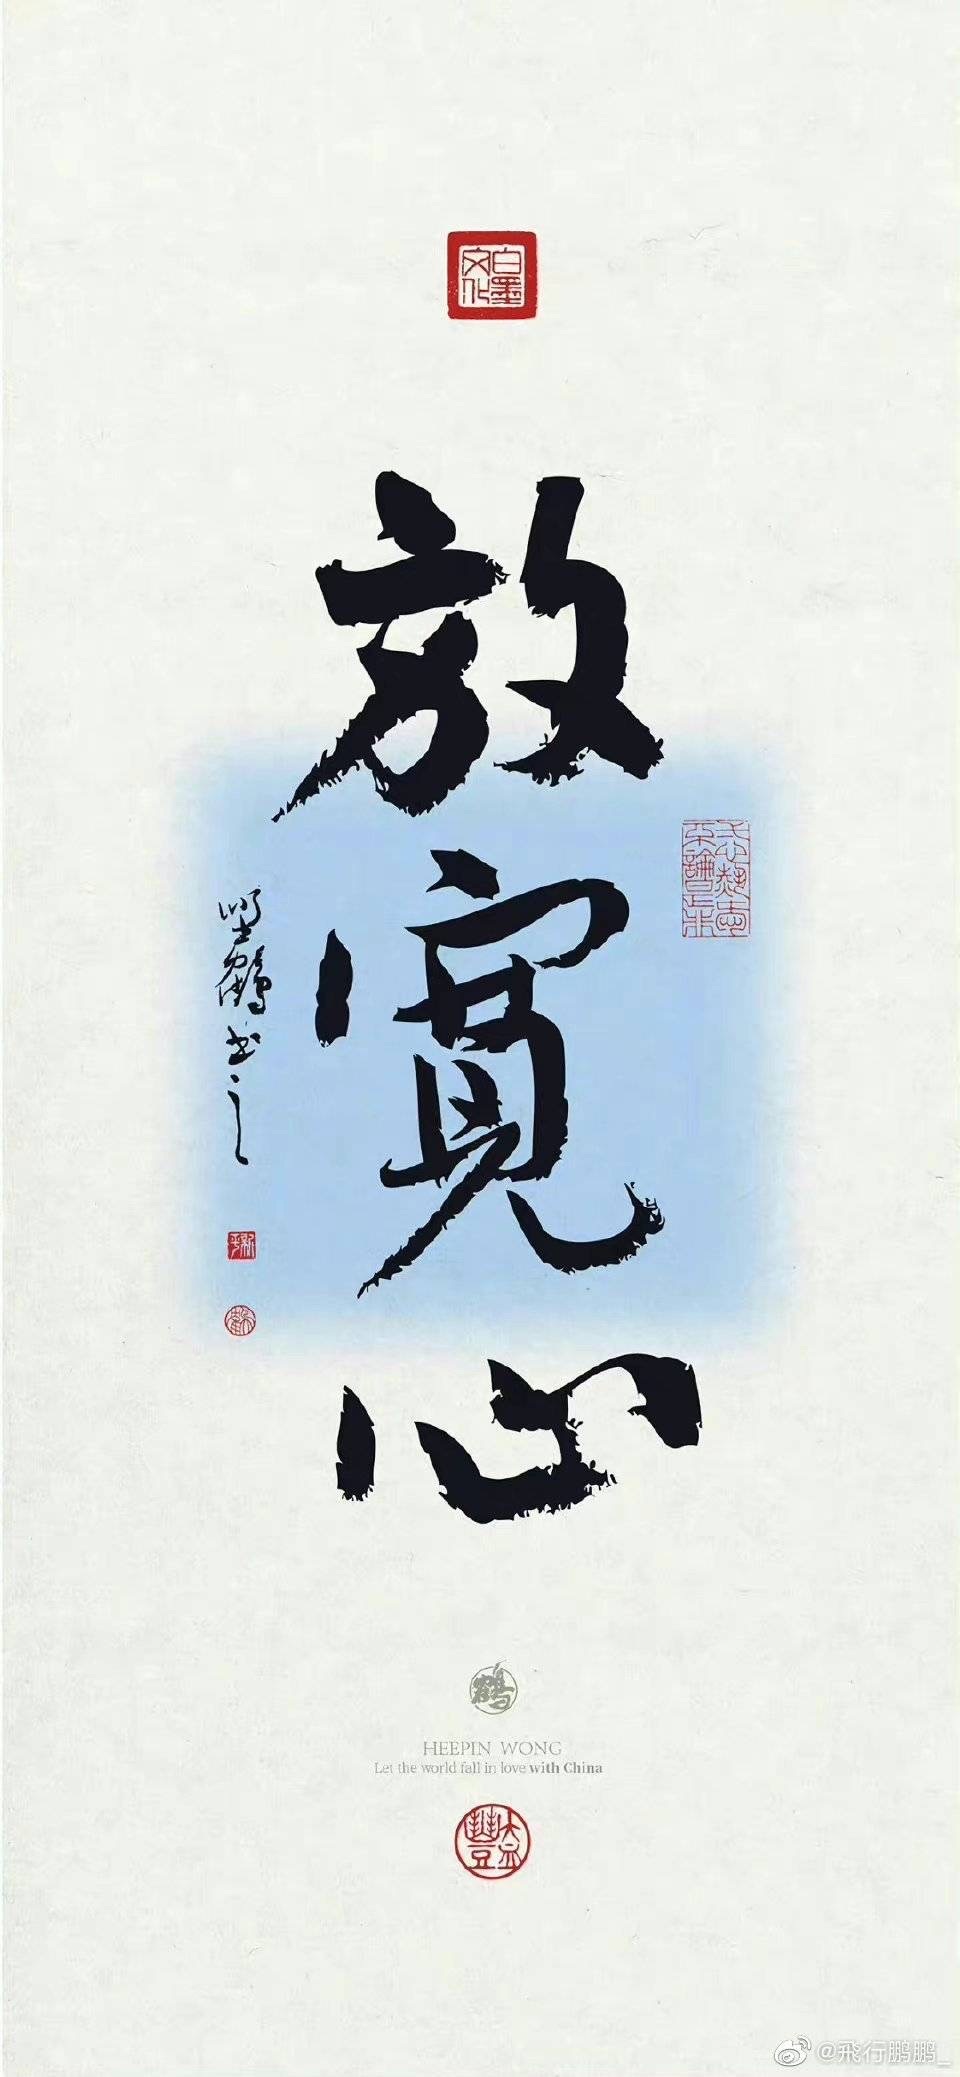 白墨
文化
放
寬
心
鶴
書之
鶴
HEEPIN WONG
Let the world fall in love with China
@飛行鹏鹏_